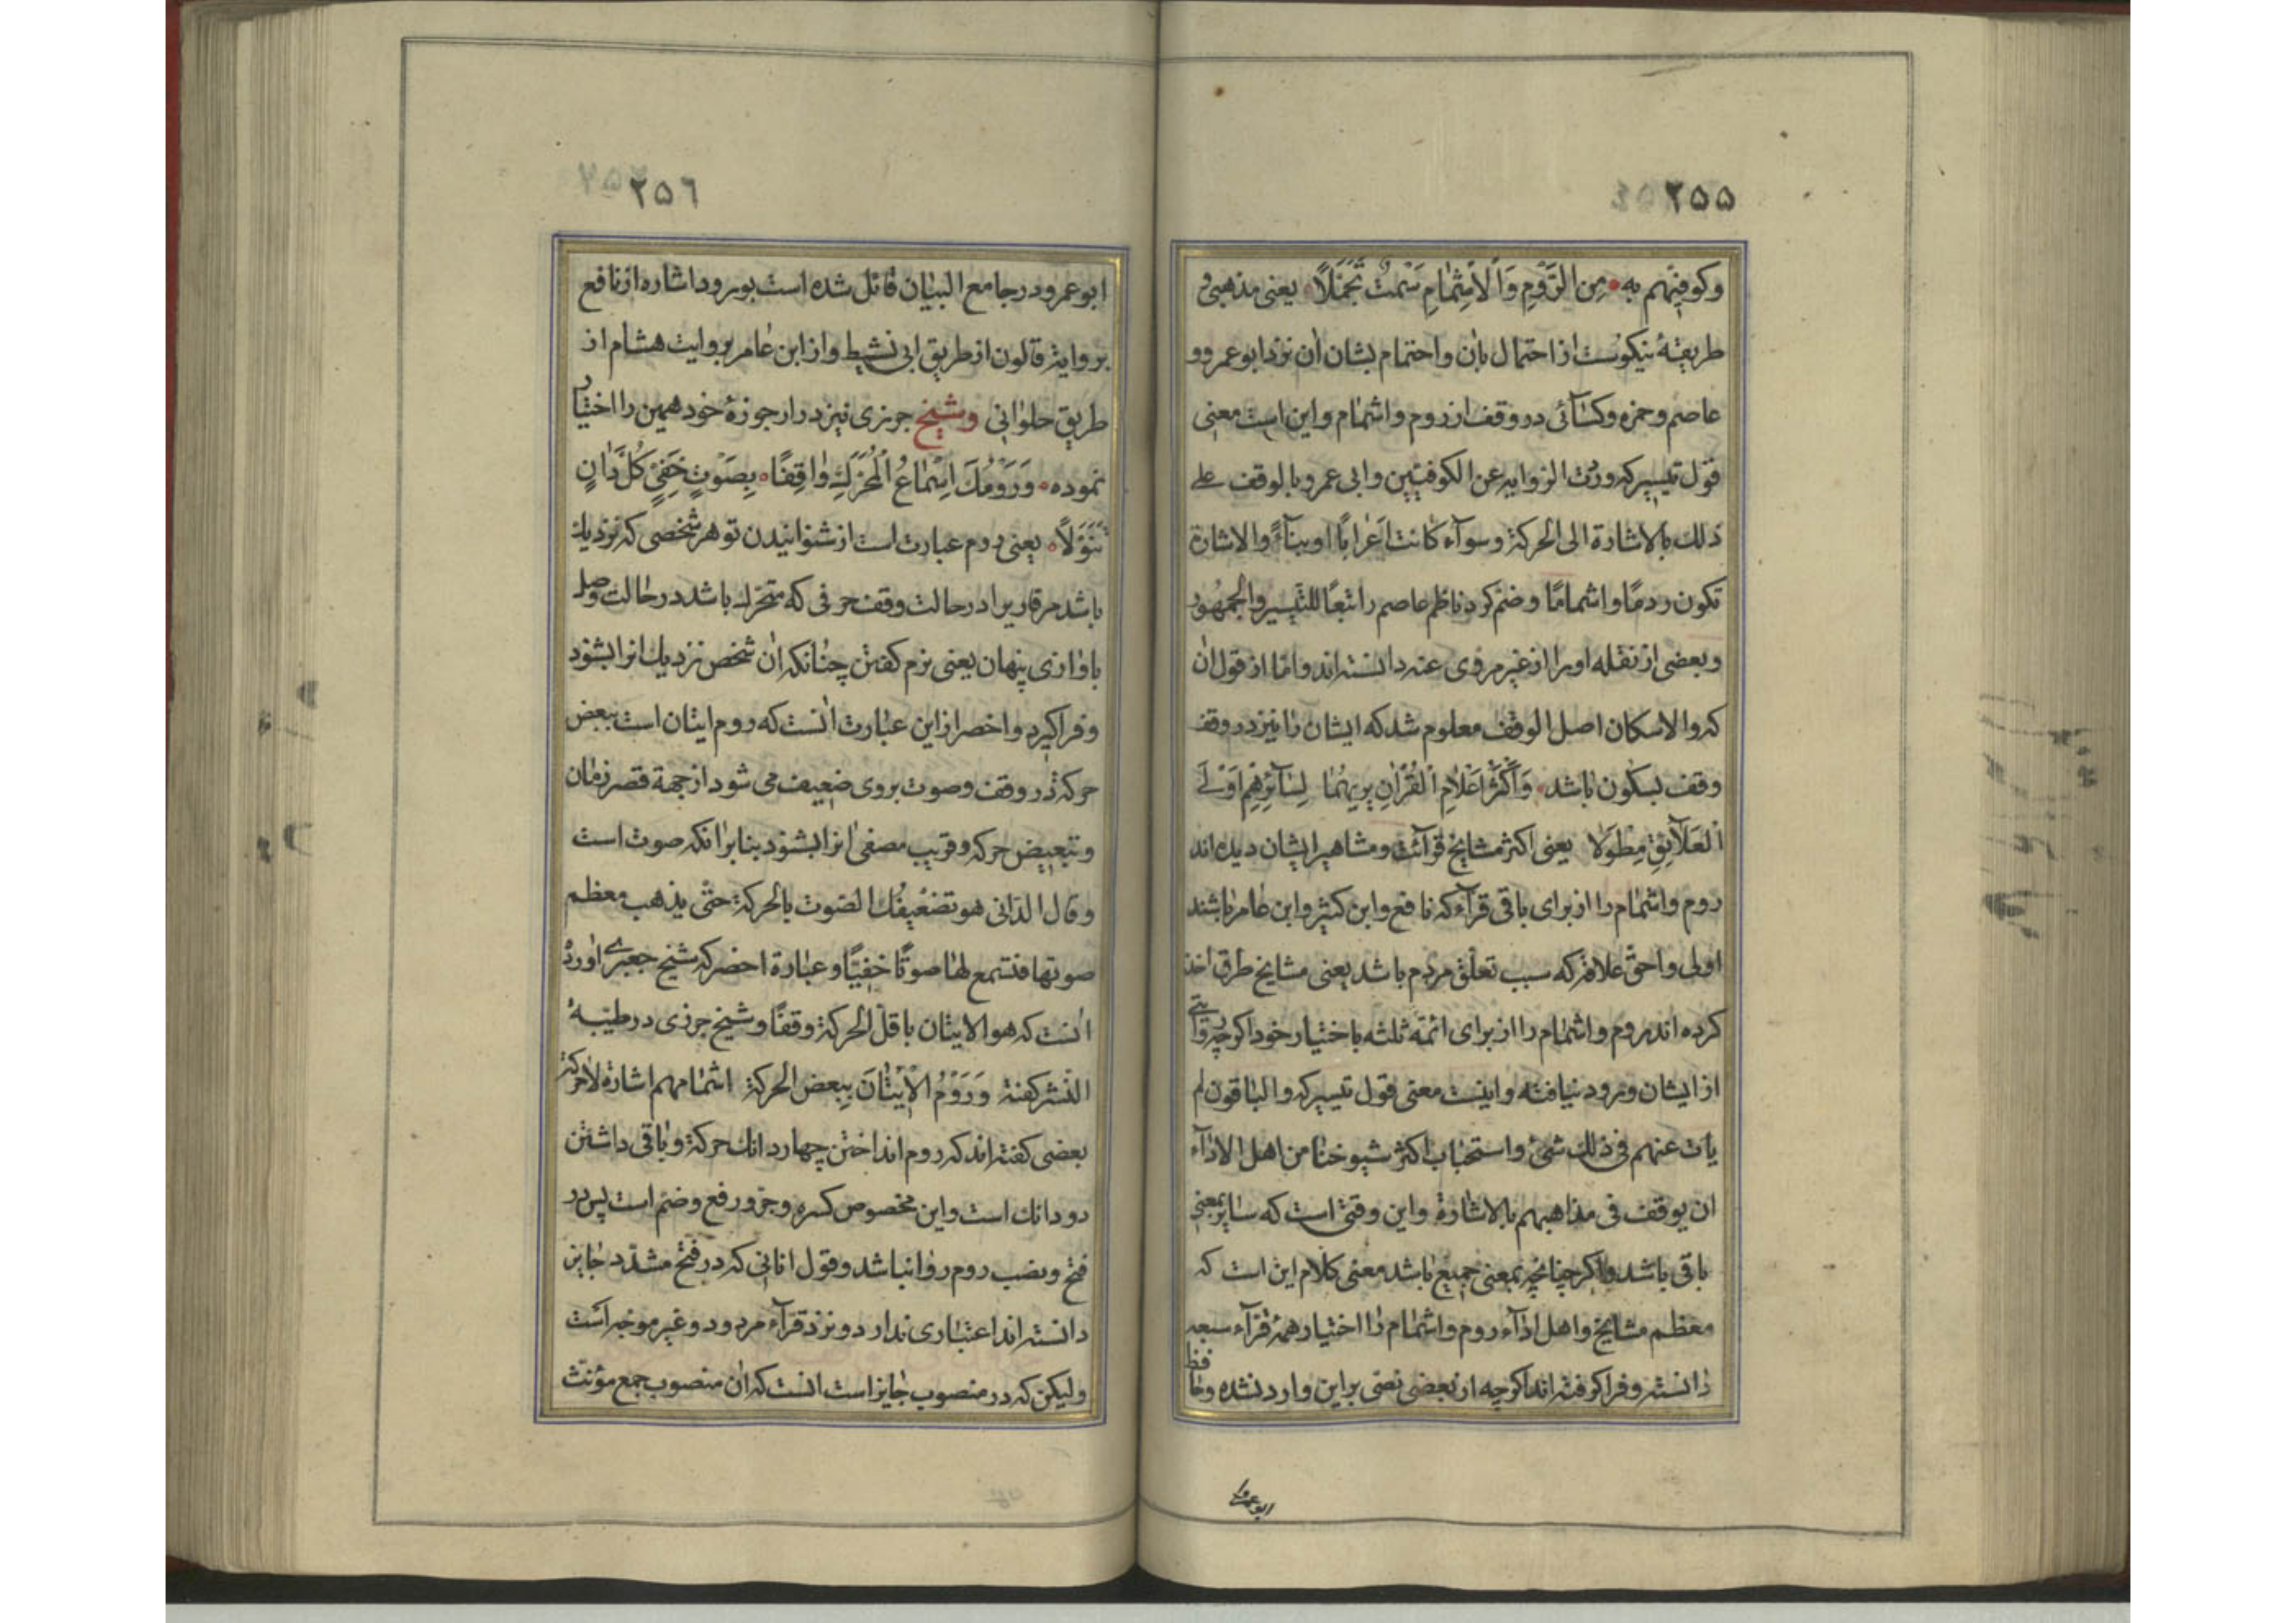 ٢٥٥
وكوفيهم به من الروم والاشمام سمت تجملا يعنى مذهبى و
طريقۀ نيكوست از احتمال بان واحتمام بشان ان نزد ابو عمرو و
عاصم وحمزه وكسائى در وقف از روم واشمام واين است معنى
قول تيسير كه وردت الروايه عن الكوفيين وابى عمرو بالوقف على
ذلك بالاشارة الى الحركة وسوآء كانت اعرابًا او بنآءً والاشارة
تكون رومًا واشمامًا وضم كرد ناظم عاصم را تبعًا للتيسير والجمهور
وبعضى از نقله او را از غير مروى عنه دانسته اند واما از قول ان
كه والاسكان اصل الوقف معلوم شد كه ايشان را نيز در وقف
وقف بسكون باشد وَاَكْثَرُ اَعْلَامِ الْقُرْاٰنِ يَرٰيهُمَا لِسَآئِرِهِمْ اَوْلَى
الْعَلَآئِقِ مِطْوَلَا يعنى اكثر مشايخ قرآئت ومشاهير ايشان ديده اند
روم واشمام را از براى باقى قرآء كه نافع وابن كثير وابن عامر باشند
اولى واحق علاقه كه سبب تعلق مردم باشد يعنى مشايخ طرق اخذ
كرده اند روم واشمام را از براى ائمۀ ثلثه باختيار خود اكرچه روايتى
از ايشان ورود نيافته واينست معنى قول تيسير كه والباقون لم
يات عنهم فى ذلك شئ واستحباب اكثر شيوخنا من اهل الادآء
ان يوقف فى مذاهبهم بالاشارة واين وقتى است كه ساير بمعنى
باقى باشد واكر چنانچه بمعنى جميع باشد معنى كلام اين است كه
معظم مشايخ واهل ادآء روم واشمام را اختيار همۀ قرآء سبعه
دانسته وفرا كرفته اند اكرچه از بعضى نصى براين وارد نشده وحافظ
ابو عمرو
٢٥٦
ابو عمرو در جامع البيان قائل شده است بورود اشاره از نافع
بروايت قالون از طريق ابى نشيط واز ابن عامر بروايت هشام از
طريق حلوانى وشيخ جزرى نيز در ارجوزۀ خود همين را اختيار
نموده وَرَوْمُكَ اِسْمَاعُ الْمُحَرَّكِ وَاقِفًا بِصَوْتٍ خَفِىٍّ كُلَّ دَانٍ
تَنَوَّلَا يعنى روم عبارت است از شنوانيدن تو هر شخصى كه نزديك
باشد مر قارى را در حالت وقف حرفى كه متحرك باشد در حالت وصل
باوازى پنهان يعنى نرم كفتن چنانكه ان شخص نزديك انرا بشنود
وفرا كيرد واخصر از اين عبارت انست كه روم ايتان است ببعض
حركة در وقف وصوت بروى ضعيف مى شود از جهة قصر زمان
وتبعيض حركه وقريب مصغى انرا بشنود بنابر انكه صوت است
وقال الدانى هو تضعيفك الصوت بالحركة حتى يذهب معظم
صوتها فتستمع لها صوتًا خفيًا وعبارة اخصر كه شيخ جعبرى اورده
انست كه هو الايتان باقل الحركة وقفًا وشيخ جزرى در طيبه
النشر كفته وَرَوْمُ الْاِيْتَانَ بِبعض الحركة اشمامهم اشارة لا حركة
بعضى كفته اند كه روم انداختن چهار دانك حركة وباقى داشتن
دو دانك است واين مخصوص كسره وجر ورفع وضم است پس در
فتح ونصب روم روا نباشد وقول انانى كه در فتح مشدد جايز
دانسته اند اعتبارى ندارد ونزد قرآء مردود وغير موجه است
وليكن كه در منصوب جايز است انست كه ان منصوب جمع مؤنث